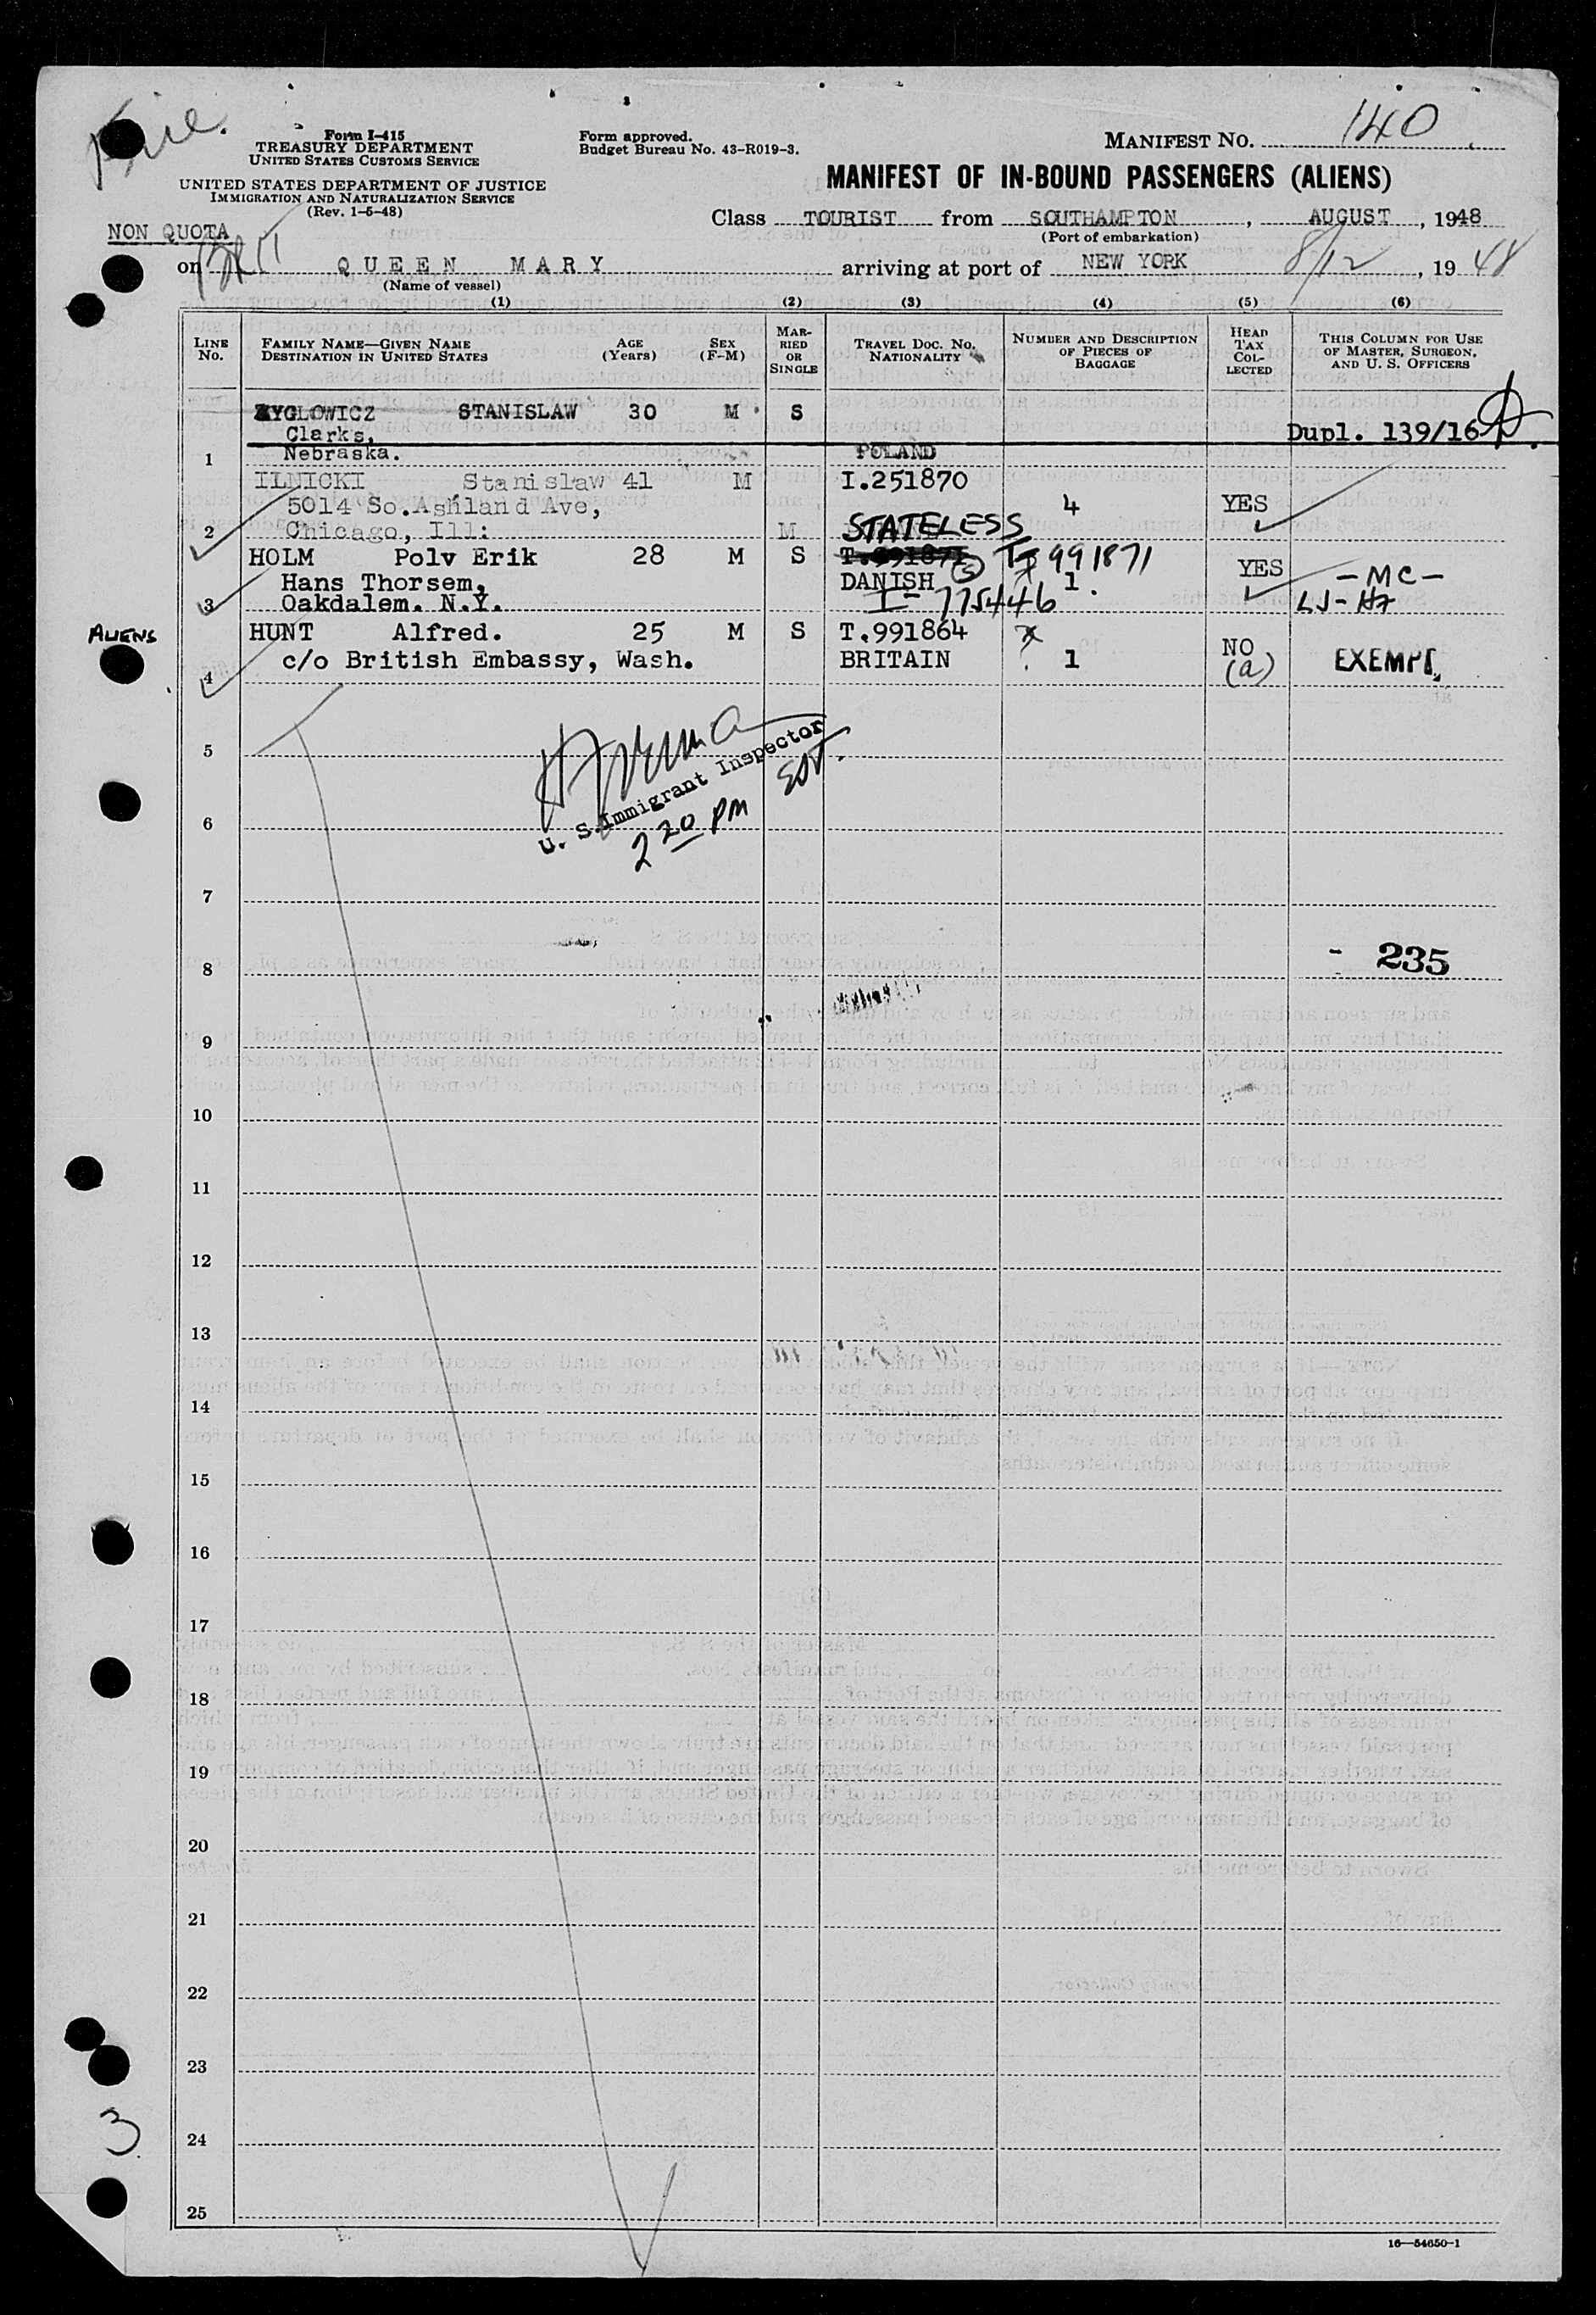 Form I-415
TREASURY DEPARTMENT
UNITED STATES CUSTOMS SERVICE
Form approved.
Budget Bureau No. 43-R019-3.
MANIFEST NO. 140
UNITED STATES DEPARTMENT OF JUSTICE
IMMIGRATION AND NATURALIZATION SERVICE
(Rev. 1-5-48)
MANIFEST OF IN-BOUND PASSENGERS (ALIENS)
NON QUOTA
Class TOURIST from SOUTHAMPTON, AUGUST, 1948
(Port of embarkation)
on QUEEN MARY arriving at port of NEW YORK 8/12, 1948
(Name of vessel)
(1) (2) (3) (4) (5) (6)
LINE No. FAMILY NAME—GIVEN NAME DESTINATION IN UNITED STATES AGE (Years) SEX (F-M) MARRIED OR SINGLE TRAVEL DOC. NO. NATIONALITY NUMBER AND DESCRIPTION OF PIECES OF BAGGAGE HEAD TAX COLLECTED THIS COLUMN FOR USE OF MASTER, SURGEON, AND U. S. OFFICERS
ZYGLOWICZ STANISLAW 30 M S
Clarks, Dupl. 139/16
1 Nebraska. POLAND
ILNICKI Stanislaw 41 M I.251870
5014 So.Ashland Ave, 4 YES
2 Chicago, Ill: M STATELESS
HOLM Polv Erik 28 M S T.991871 T 991871
Hans Thorsem, DANISH (S) 1. YES -MC-
3 Oakdalem. N.Y. I-775446 LJ-
ALIENS
HUNT Alfred. 25 M S T.991864 NO
c/o British Embassy, Wash. BRITAIN 1 (a) EXEMPT
4
5
U. S. Immigrant Inspector
2 20 PM EST.
6
7
8 - 235
9
10
11
12
13
14
15
16
17
18
19
20
21
22
23
3
24
25
16—54650-1